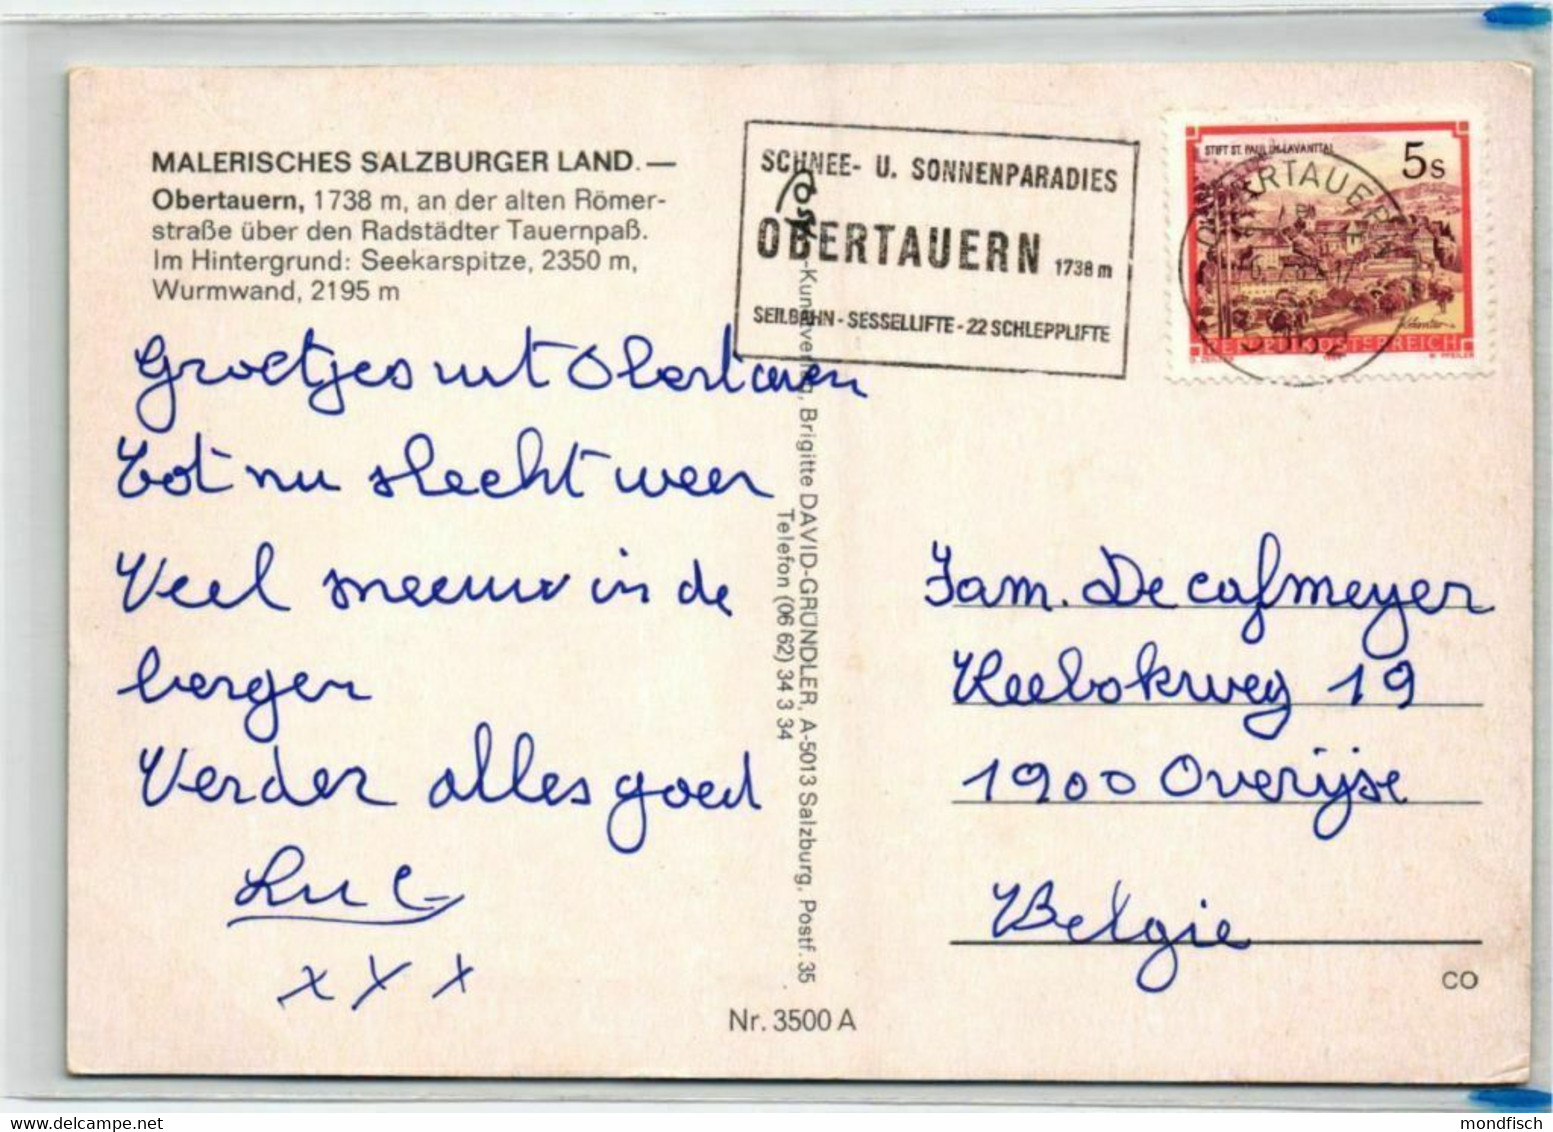 MALERISCHES SALZBURGER LAND. —
Obertauern, 1738 m, an der alten Römer-
straße über den Radstädter Tauernpaß.
Im Hintergrund: Seekarspitze, 2350 m,
Wurmwand, 2195 m
Groetjes uit Obertauern
Tot nu slecht weer
Veel sneeuw in de
bergen
Verder alles goed
Luc
x x x
SCHNEE- U. SONNENPARADIES
OBERTAUERN 1738 m
SEILBAHN - SESSELLIFTE - 22 SCHLEPPLIFTE
STIFT ST. PAUL IM LAVANTTAL
5s
REPUBLIK ÖSTERREICH
OBERTAUERN
5562
-Kunstverlag, Brigitte DAVID-GRÜNDLER, A-5013 Salzburg, Postf. 35
Telefon (06 62) 34 3 34
Nr. 3500 A
Fam. Decafmeyer
Reebokweg 19
1900 Overijse
België
CO
mondfisch